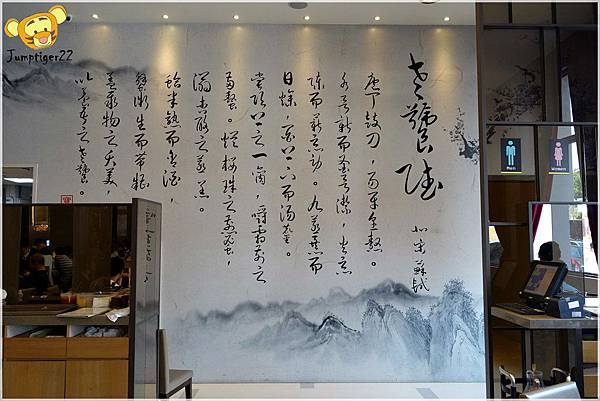 Jumptiger22
老饕賦
北宋 蘇軾
庖丁鼓刀，易牙烹熬。
水欲新而釜欲潔，火惡
陳而薪惡勞。九蒸暴而
日燥，百上下而湯鏖。
嘗項上之一臠，嚼霜前之
兩螯。爛櫻珠之煎蜜，
滃杏酪之蒸羔。
蛤半熟而含酒，
蟹微生而帶糟。
蓋聚物之夭美，
以養吾之老饕。
Men
Women